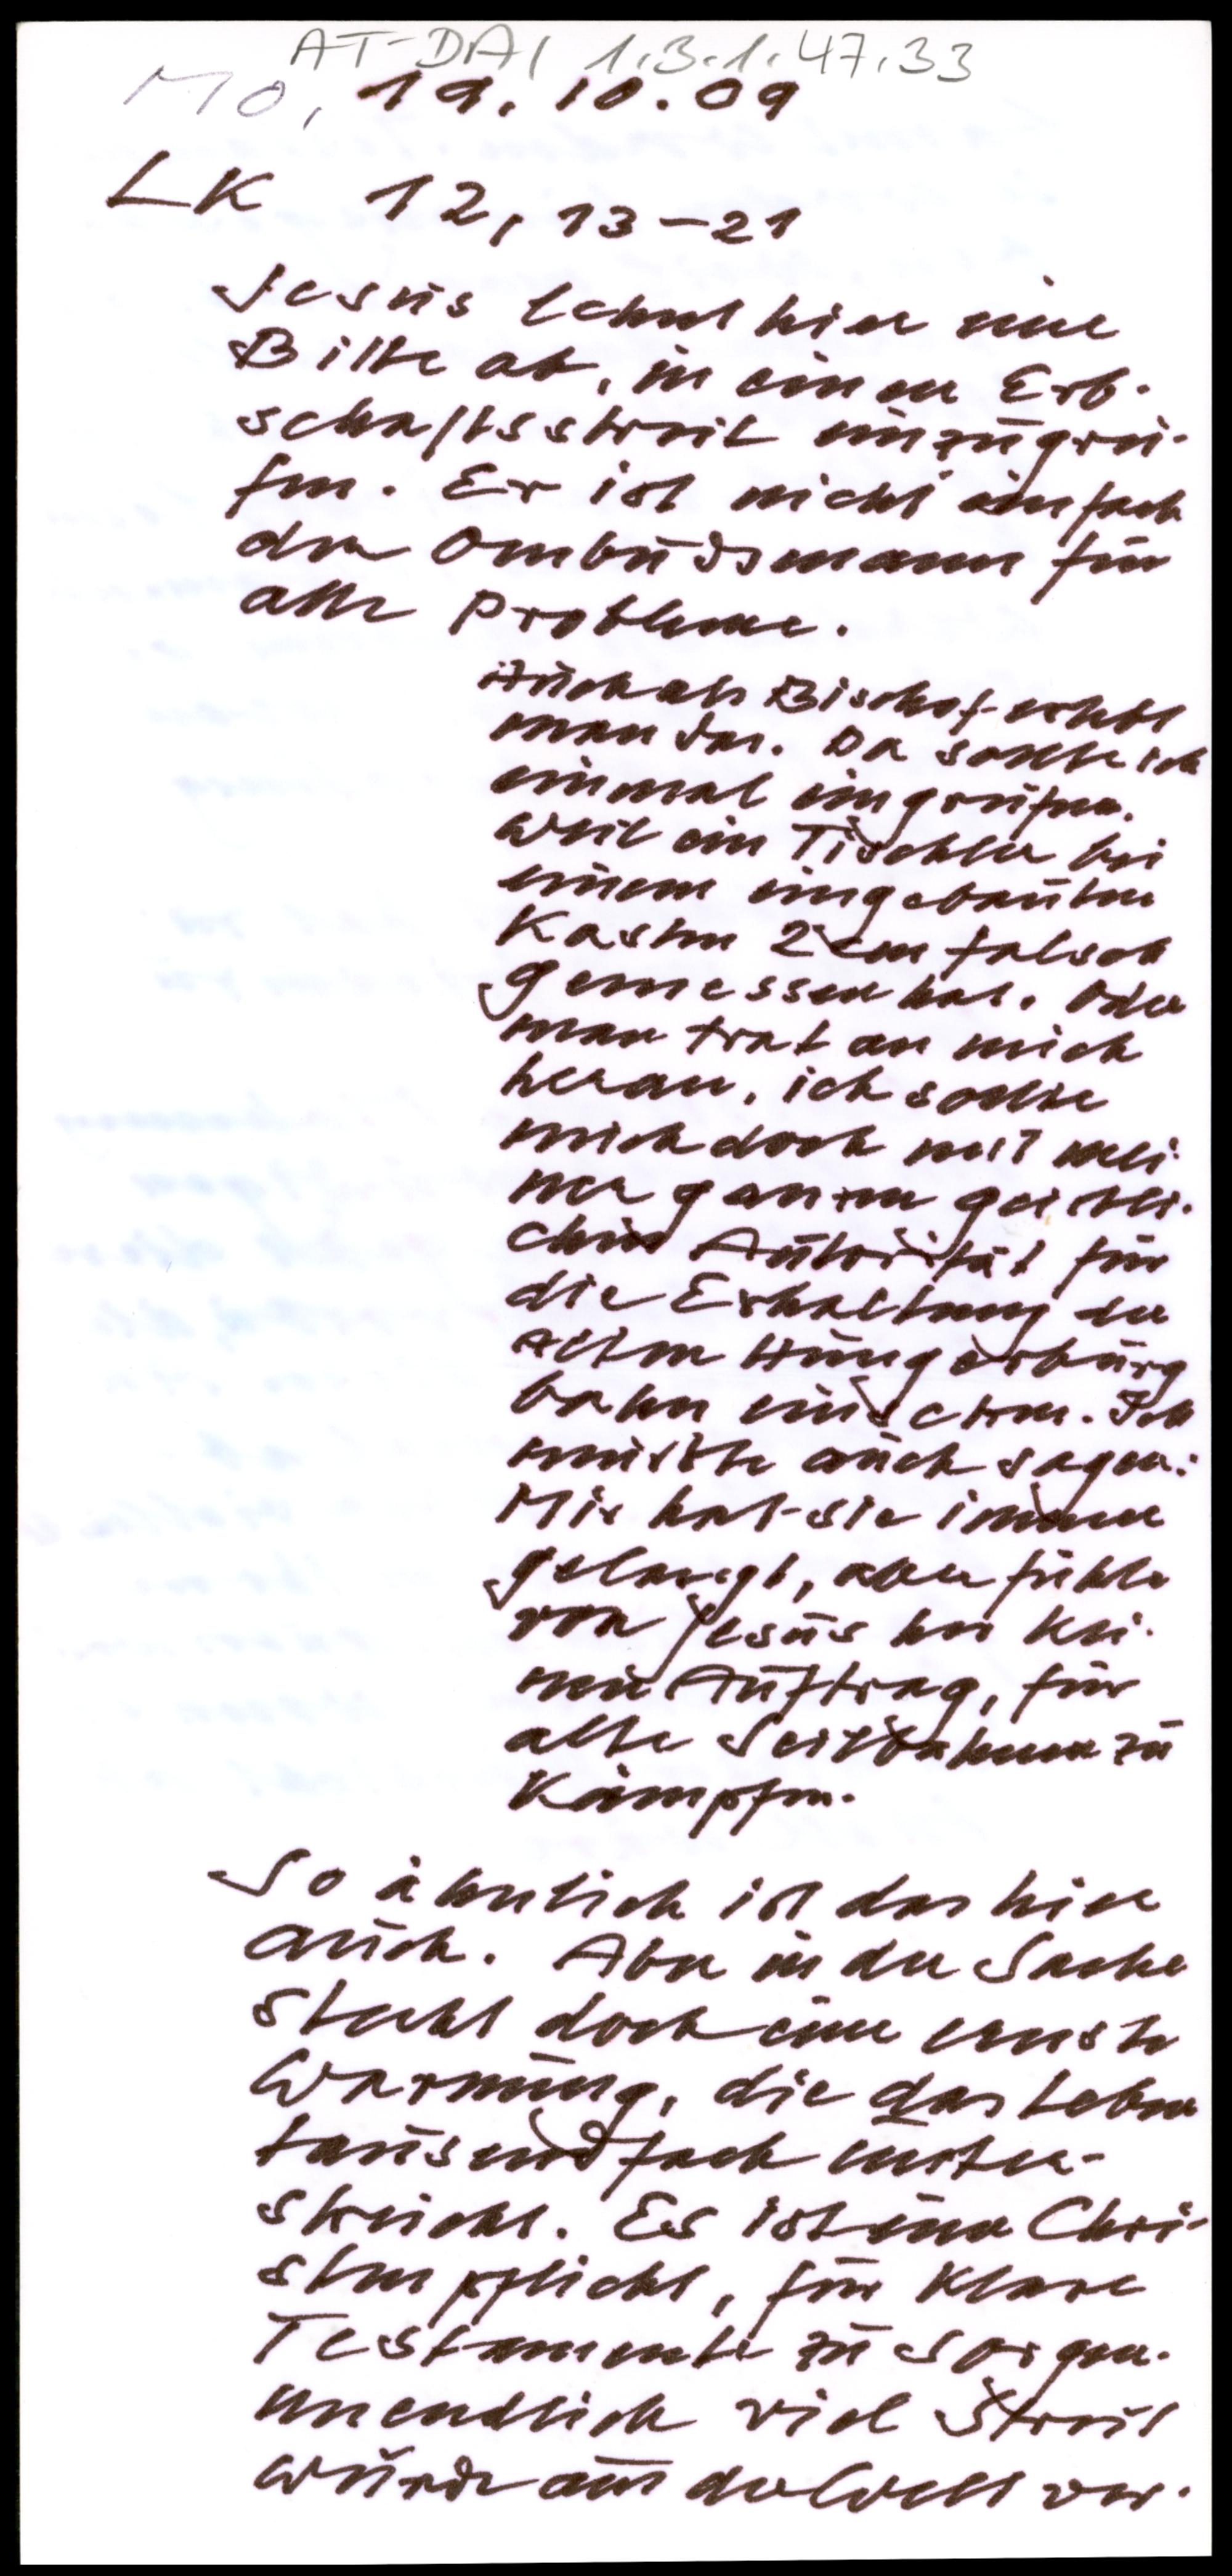 AT-DAI 1.3.1.47.33
MO, 19.10.09
LK 12, 13-21
Jesus lehnt hier eine
Bitte ab, in einen Erb-
schaftsstreit einzugrei-
fen. Er ist nicht einfach
der Ombudsmann für
alle Probleme.
Auch als Bischof erlebt
man das. Da sollte ich
einmal eingreifen,
weil ein Tischler bei
einem eingebauten
Kasten 2 cm falsch
gemessen hat. Oder
man trat an mich
heran, ich sollte
mich doch mit mei-
ner ganzen geistli-
chen Autorität für
die Erhaltung der
Alten Hungerburg
bahn einsetzen. Ich
musste auch sagen:
Mir hat sie immer
gelangt, aber fühle
von Jesus her kei-
nen Auftrag, für
alte Seilbahnen zu
kämpfen.
So ähnlich ist das hier
auch. Aber in der Sache
steckt doch eine ernste
Warnung, die das Leben
tausendfach unter-
streicht. Es ist eine Chri-
stenpflicht, für klare
Testamente zu sorgen.
Unendlich viel Streit
würde aus der Welt ver-